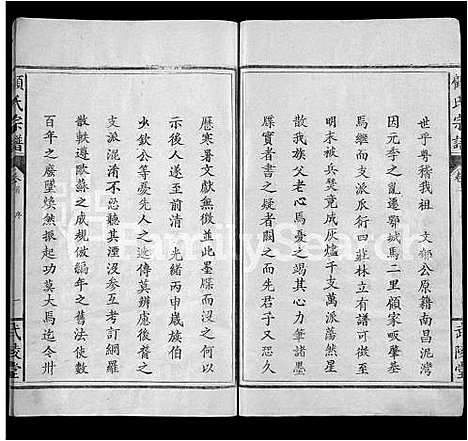 顧氏宗譜
卷首
武陵堂
世乎尊稽我祖 文郁公原籍南昌泥灣
因元季之亂遷鄂城馬二里顧家畈肇基
馬繼而支派衍行四莊林立有譜可徵至
明末被兵燹竟成灰燼千支萬派蕩然星
散我族父老心焉憂之竭其心力筆諸墨
牒實者書之疑者闕之而先君子又恐久
歷寒暑文獻無徵並此墨牒而失之無以
示後人遂至前清 光緒丙申歲族伯
少欽公等憂先人之遺傳莫辨慮後裔之
支派混淆不忍聽其湮沒參互考訂網羅
散軼遵歐蘇之成規倣編年之舊法使數
百年之廢墜煥然振起功莫大焉迄今卅
顧氏宗譜
卷首 序
一
武陵堂
FamilySearch